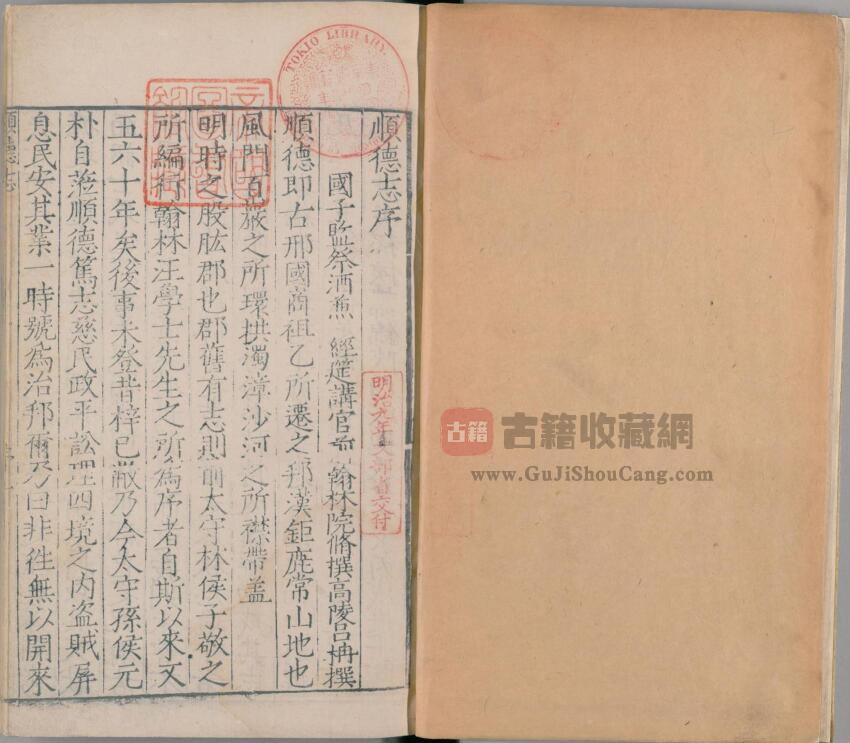 順德志序
國子監祭酒兼 經筵講官前翰林院脩撰高陵呂柟撰
順德即古邢國商祖乙所遷之邦漢鉅鹿常山地也
風門百巖之所環拱濁漳沙河之所襟帶蓋
明時之股肱郡也郡舊有志則前太守林侯子敬之
所編行翰林汪學士先生之所為序者自斯以來文
五六十年矣後事未登昔梓已敝乃今太守孫侯元
朴自蒞順德篤志慈民政平訟理四境之內盜賊屏
息民安其業一時號為治邦爾乃曰非徃無以開來
順德志
序
TOKIO LIBRARY
明治九年文部省交付
古籍
古籍收藏網
www.GuJiShouCang.com